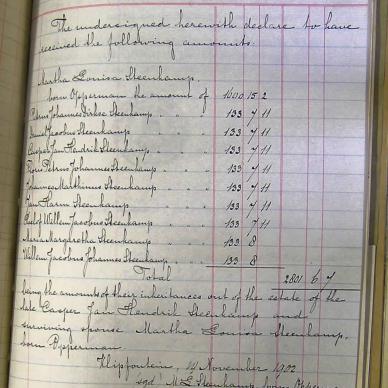 The undersigned herewith declare to have
received the following amounts:
Martha Louisa Steenkamp,
born Opperman the amount of 1600 15 2
Petrus Johannes Steenkamp " " 133 7 11
Jacobus Steenkamp " " 133 7 11
Casper Jan Hendrik Steenkamp " " 133 7 11
Petrus Johannes Steenkamp " " 133 7 11
Johannes Marthinus Steenkamp " " 133 7 11
Jan Harm Steenkamp " " 133 7 11
Willem Jacobus Steenkamp " " 133 7 11
Maria Margaretha Steenkamp " " 133 8
Willem Jacobus Johannes Steenkamp " 133 8
Total 2801 6 7
being the amounts of their inheritances out of the estate of the
late Casper Jan Hendrik Steenkamp and
surviving spouse Martha Louisa Steenkamp,
born Opperman.
Klipfontein, November 1902
sgd M. L. Steenkamp born Opperman